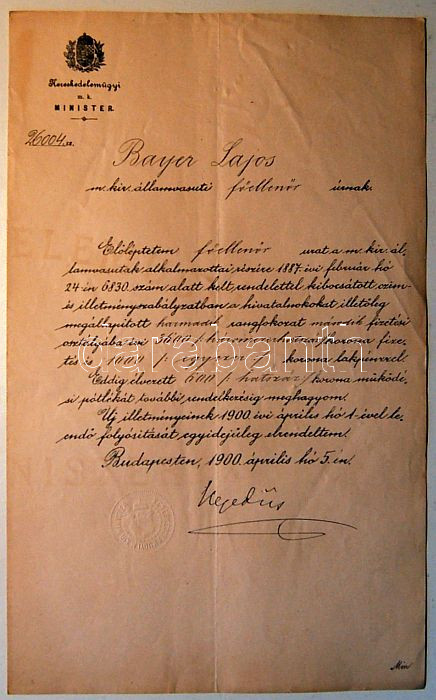 Kereskedelemügyi
m. k.
MINISTER.
26004.sz.
Bayer Lajos
m. kir. államvasuti főellenőr úrnak.
Előléptetem főellenőr urat a m. kir. ál-
lamvasutak alkalmazottai részére 1887. évi február hó
24-én 6830. szám alatt kelt rendelettel kibocsátott czím-
és illetményszabályzatban a hivatalnokokat illetőleg
megállapitott harmadik rangfokozat fizetési
osztályába évi 3600 / korona fize-
tés és 1000 / korona lakpénzzel.
Eddig élvezett 600 / hatszáz / korona működé-
si pótlékát további rendelkezésig meghagyom.
Uj illetményeinek 1900. évi április hó 1-ével le-
endő folyósitását egyidejüleg elrendeltem.
Budapesten, 1900. április hó 5.-én.
Hegedüs
Min
darabanth